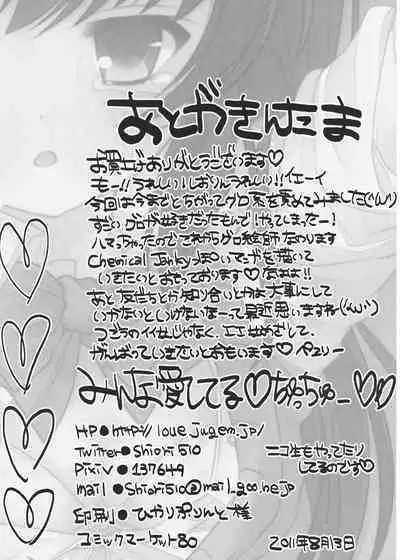 あとがきんたま
お買上げありがとうございます♡
もー!!うれしい!しおりんうれしい!!イエーイ
今回は今までとちがってグロ系を責めてみました(^ω^)
すごいグロが好きだったもんで
ハマっちゃったのでこれからグロ絵師なのります
Chemical Janky 描いて
いきたいとおもっております
あと友だちとか知り合いとかは大事にして
いかないといけないなーって最近思いますね
つごうのイイ じゃなく、
がんばっていきたいとおもいます♡
みんな愛してる♡ちゅっちゅー♡♡
HP●http://love.jugem.jp/
Twitter●Shiori510
Pixiv●137649
mail●Shiori510@mail.goo.ne.jp
ニコ生もやってたり
してるのです♡
印刷●ひかりぷりんと様
コミックマーケット80
2011年8月13日